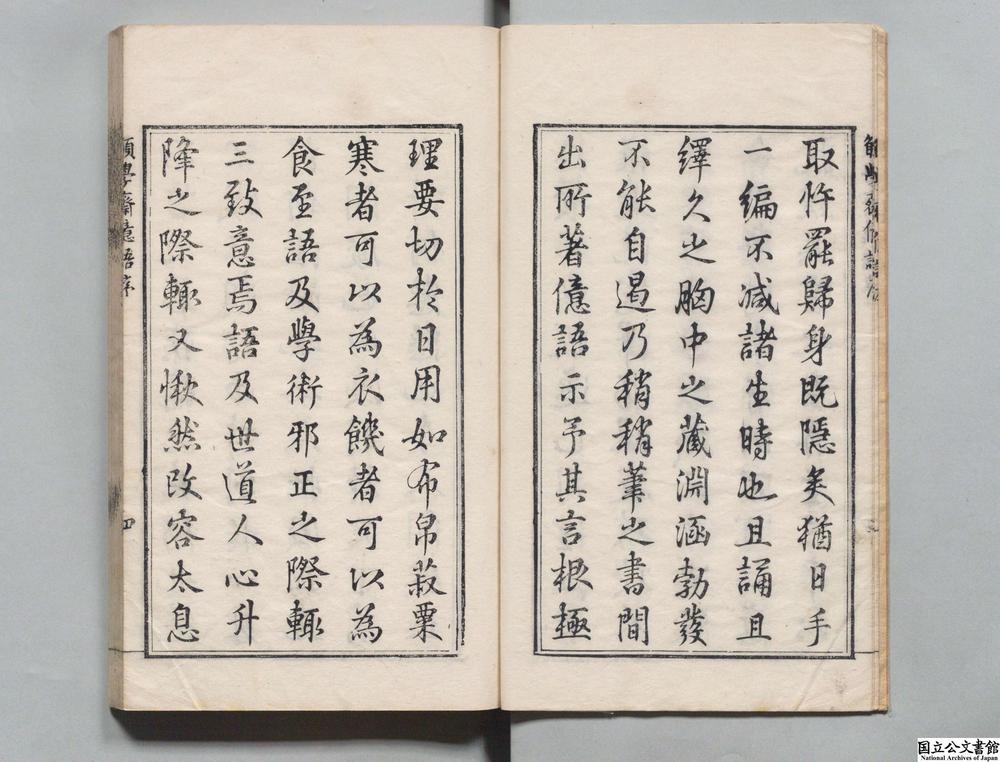 取忤罷歸身既隱矣猶日手
一編不減諸生時也且誦且
繹久之胸中之藏淵涵勃發
不能自遏乃稍稍筆之書間
出所著億語示予其言根極
理要切於日用如布帛菽粟
寒者可以為衣饑者可以為
食至語及學術邪正之際輒
三致意焉語及世道人心升
降之際輒又愀然改容太息
願學齋億語序
四
国立公文書館
National Archives of Japan